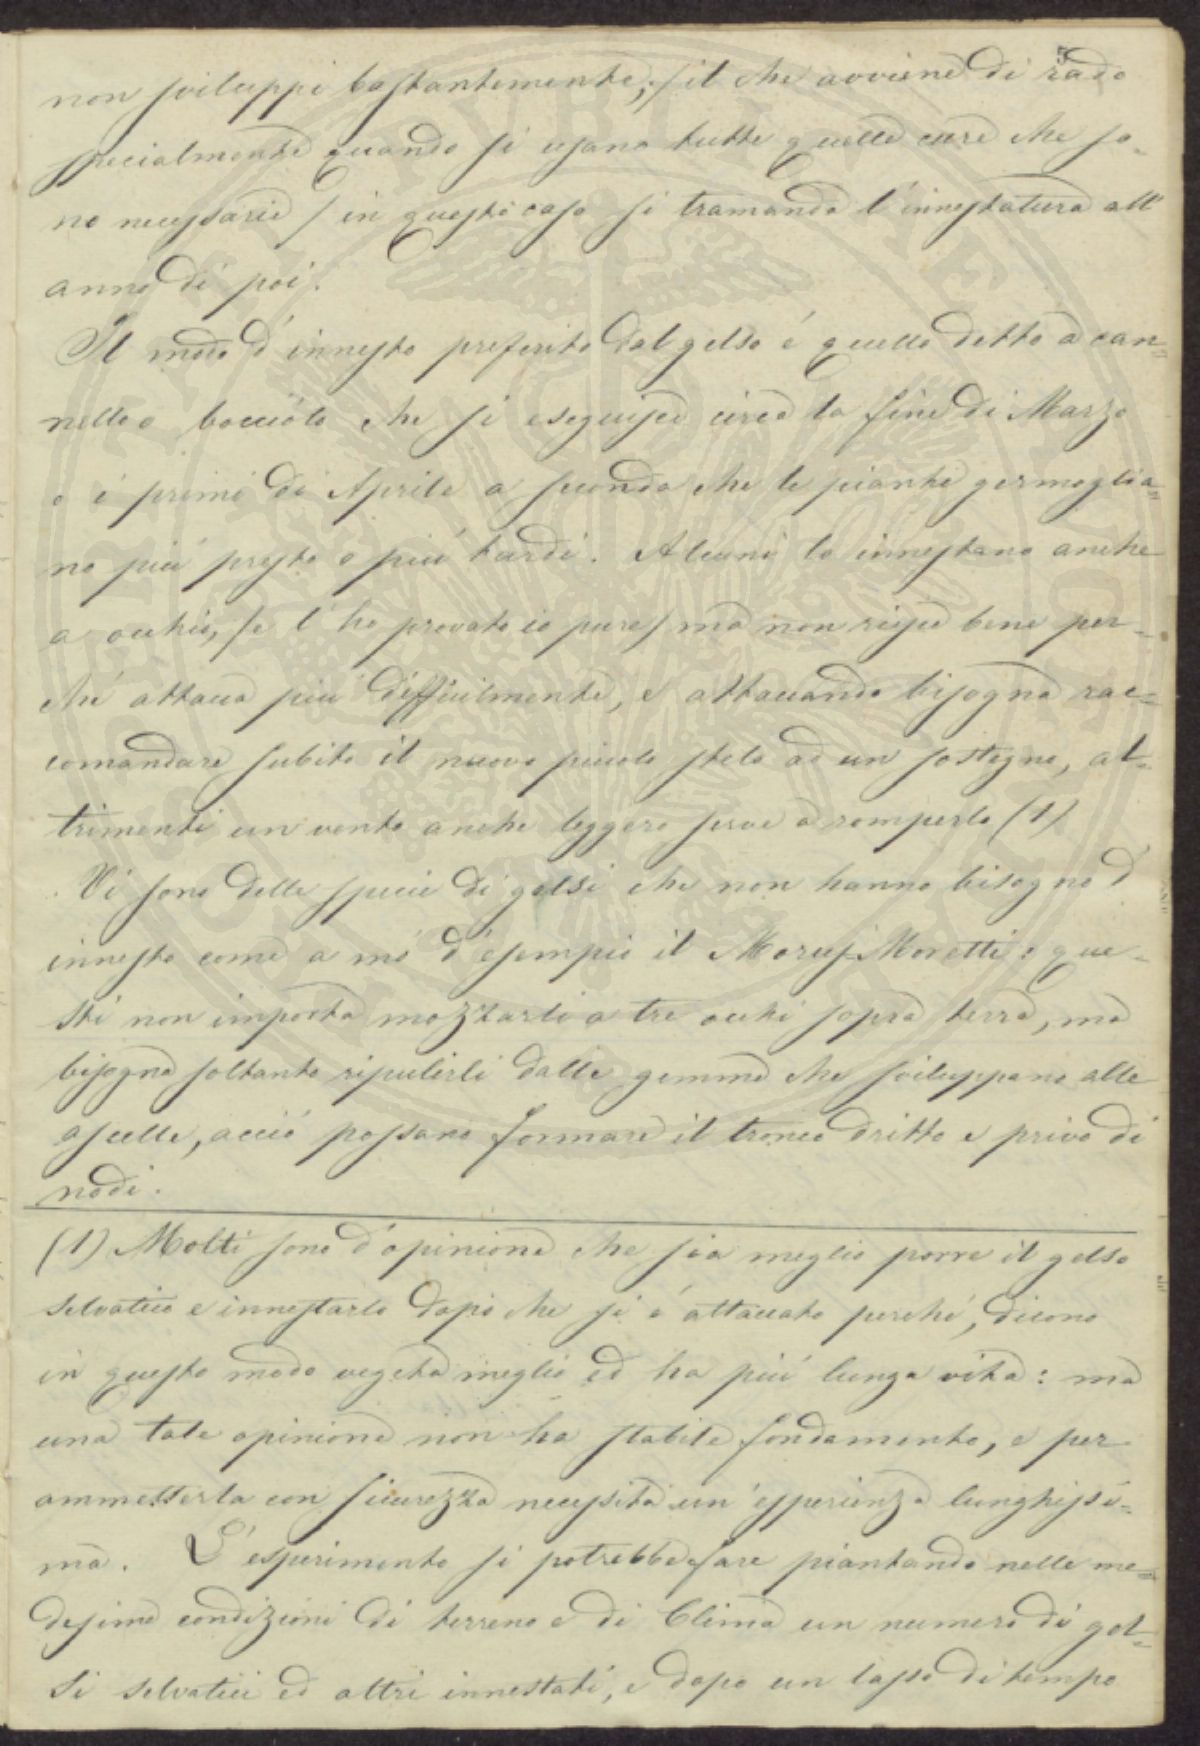 non sviluppi bastantemente; /il che avviene di rado
specialmente quando si usano tutte quelle cure che so-
no necessarie/ in questo caso si tramanda l'innestatura all'
anno di poi.
Il modo d'innesto preferito dal gelso é quello detto a can=
nello o bocciólo che si eseguisce circa la fine di Marzo
o i primi di Aprile a seconda che le piante germoglia=
no piú presto o piú tardi. Alcuni lo innestano anche
a occhio, /e l'ho provato io pure/ ma non riesce bene per-
ché attacca piú difficilmente, e attaccando bisogna rac=
comandare subito il nuovo piccolo stelo ad un sostegno, al=
trimenti un vento anche leggero serve a romperlo (1)
Vi sono delle specie di gelsi che non hanno bisogno d'
innesto come a mó d'esempio il Morus-Moretti: que-
sti non importa mozzarli a tre occhi sopra terra, ma
bisogna soltanto ripulirli dalle gemme che sviluppano alle
ascelle, acció possano formare il tronco dritto e privo di
nodi.
(1) Molti sono d'opinione che sia meglio porre il gelso
selvatico e innestarlo dopo che si é attaccato perché, dicono
in questo modo vegeta meglio ed ha piú lunga vita: ma
una tale opinione non ha stabile fondamento, e per
ammetterla con sicurezza necessita un'esperienza lunghissi=
ma. L'esperimento si potrebbe fare piantando nelle me=
desime condizioni di terreno e di Clima un numero di gel=
si selvatici ed altri innestati, e dopo un lasso di tempo